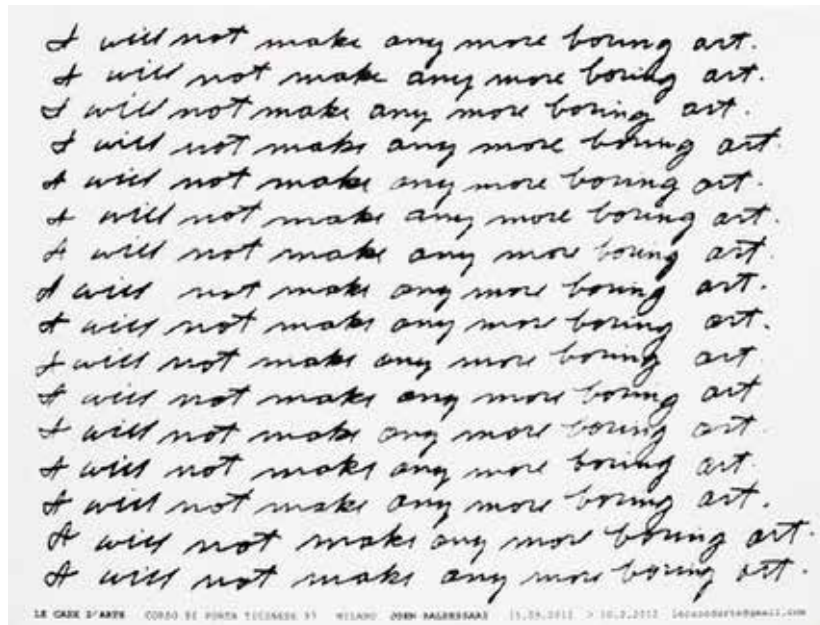 I will not make any more boring art.
I will not make any more boring art.
I will not make any more boring art.
I will not make any more boring art.
I will not make any more boring art.
I will not make any more boring art.
I will not make any more boring art.
I will not make any more boring art.
I will not make any more boring art.
I will not make any more boring art
I will not make any more boring art
I will not make any more boring art.
I will not make any more boring art.
I will not make any more boring art.
I will not make any more boring art.
I will not make any more boring art.
LE CASE D'ARTE CORSO DI PORTA TICINESE 87 MILANO JOHN BALDESSARI 15.09.2011 > 10.2.2012 lecasedarte@gmail.com